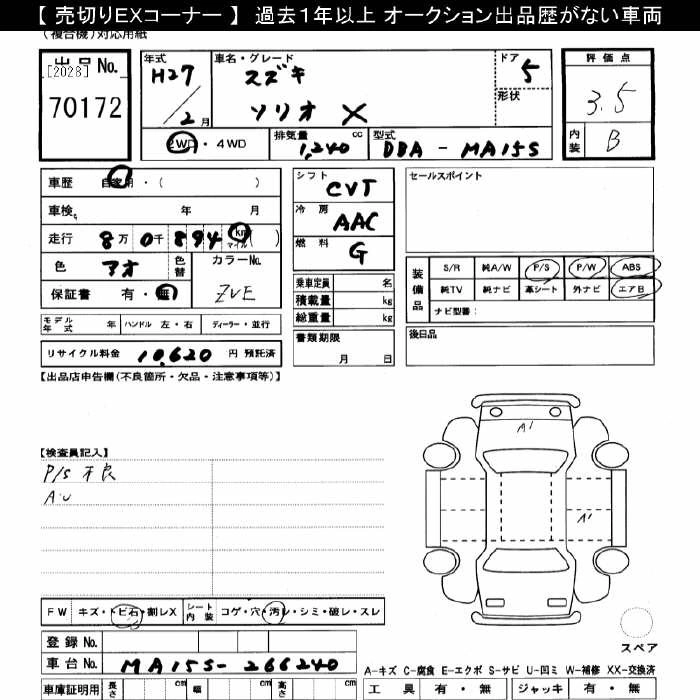 【 売切りEXコーナー 】 過去１年以上 オークション出品歴がない車両
(複合機)対応用紙
出品No.
[2028]
70172
年式 H27 / 2月
車名・グレード スズキ
ソリオ X
ドア 5
形状
評価点 3.5
内装 B
2WD・4WD
排気量 1,240 cc
型式 DBA - MA15S
車歴 自家用・( )
車検 年 月
走行 8万0千894 km マイル ( )
色 アオ 色替
カラーNo. ZVE
保証書 有・無
シフト CVT
冷房 AAC
燃料 G
セールスポイント
乗車定員 名
積載量 kg
総重量 kg
装備品 S/R 純A/W P/S P/W ABS
純TV 純ナビ 革シート 外ナビ エアB
ナビ型番:
モデル年式 年 ハンドル 左・右 ディーラー・並行
書類期限 月 日
後日品
リサイクル料金 10,620 円 預託済
【出品店申告欄(不良箇所・欠品・注意事項等)】
【検査員記入】
P/S 不良
A・U
A1
A1
FW キズ・トビ石・割レX
シート内装 コゲ・穴・汚レ・シミ・破レ・スレ
スペア
登録No.
車台No. MA15S-266240
A-キズ C-腐食 E-エクボ S-サビ U-凹ミ W-補修 XX-交換済
車庫証明用 長さ cm 幅 cm 高さ cm
工具 有・無 ジャッキ 有・無